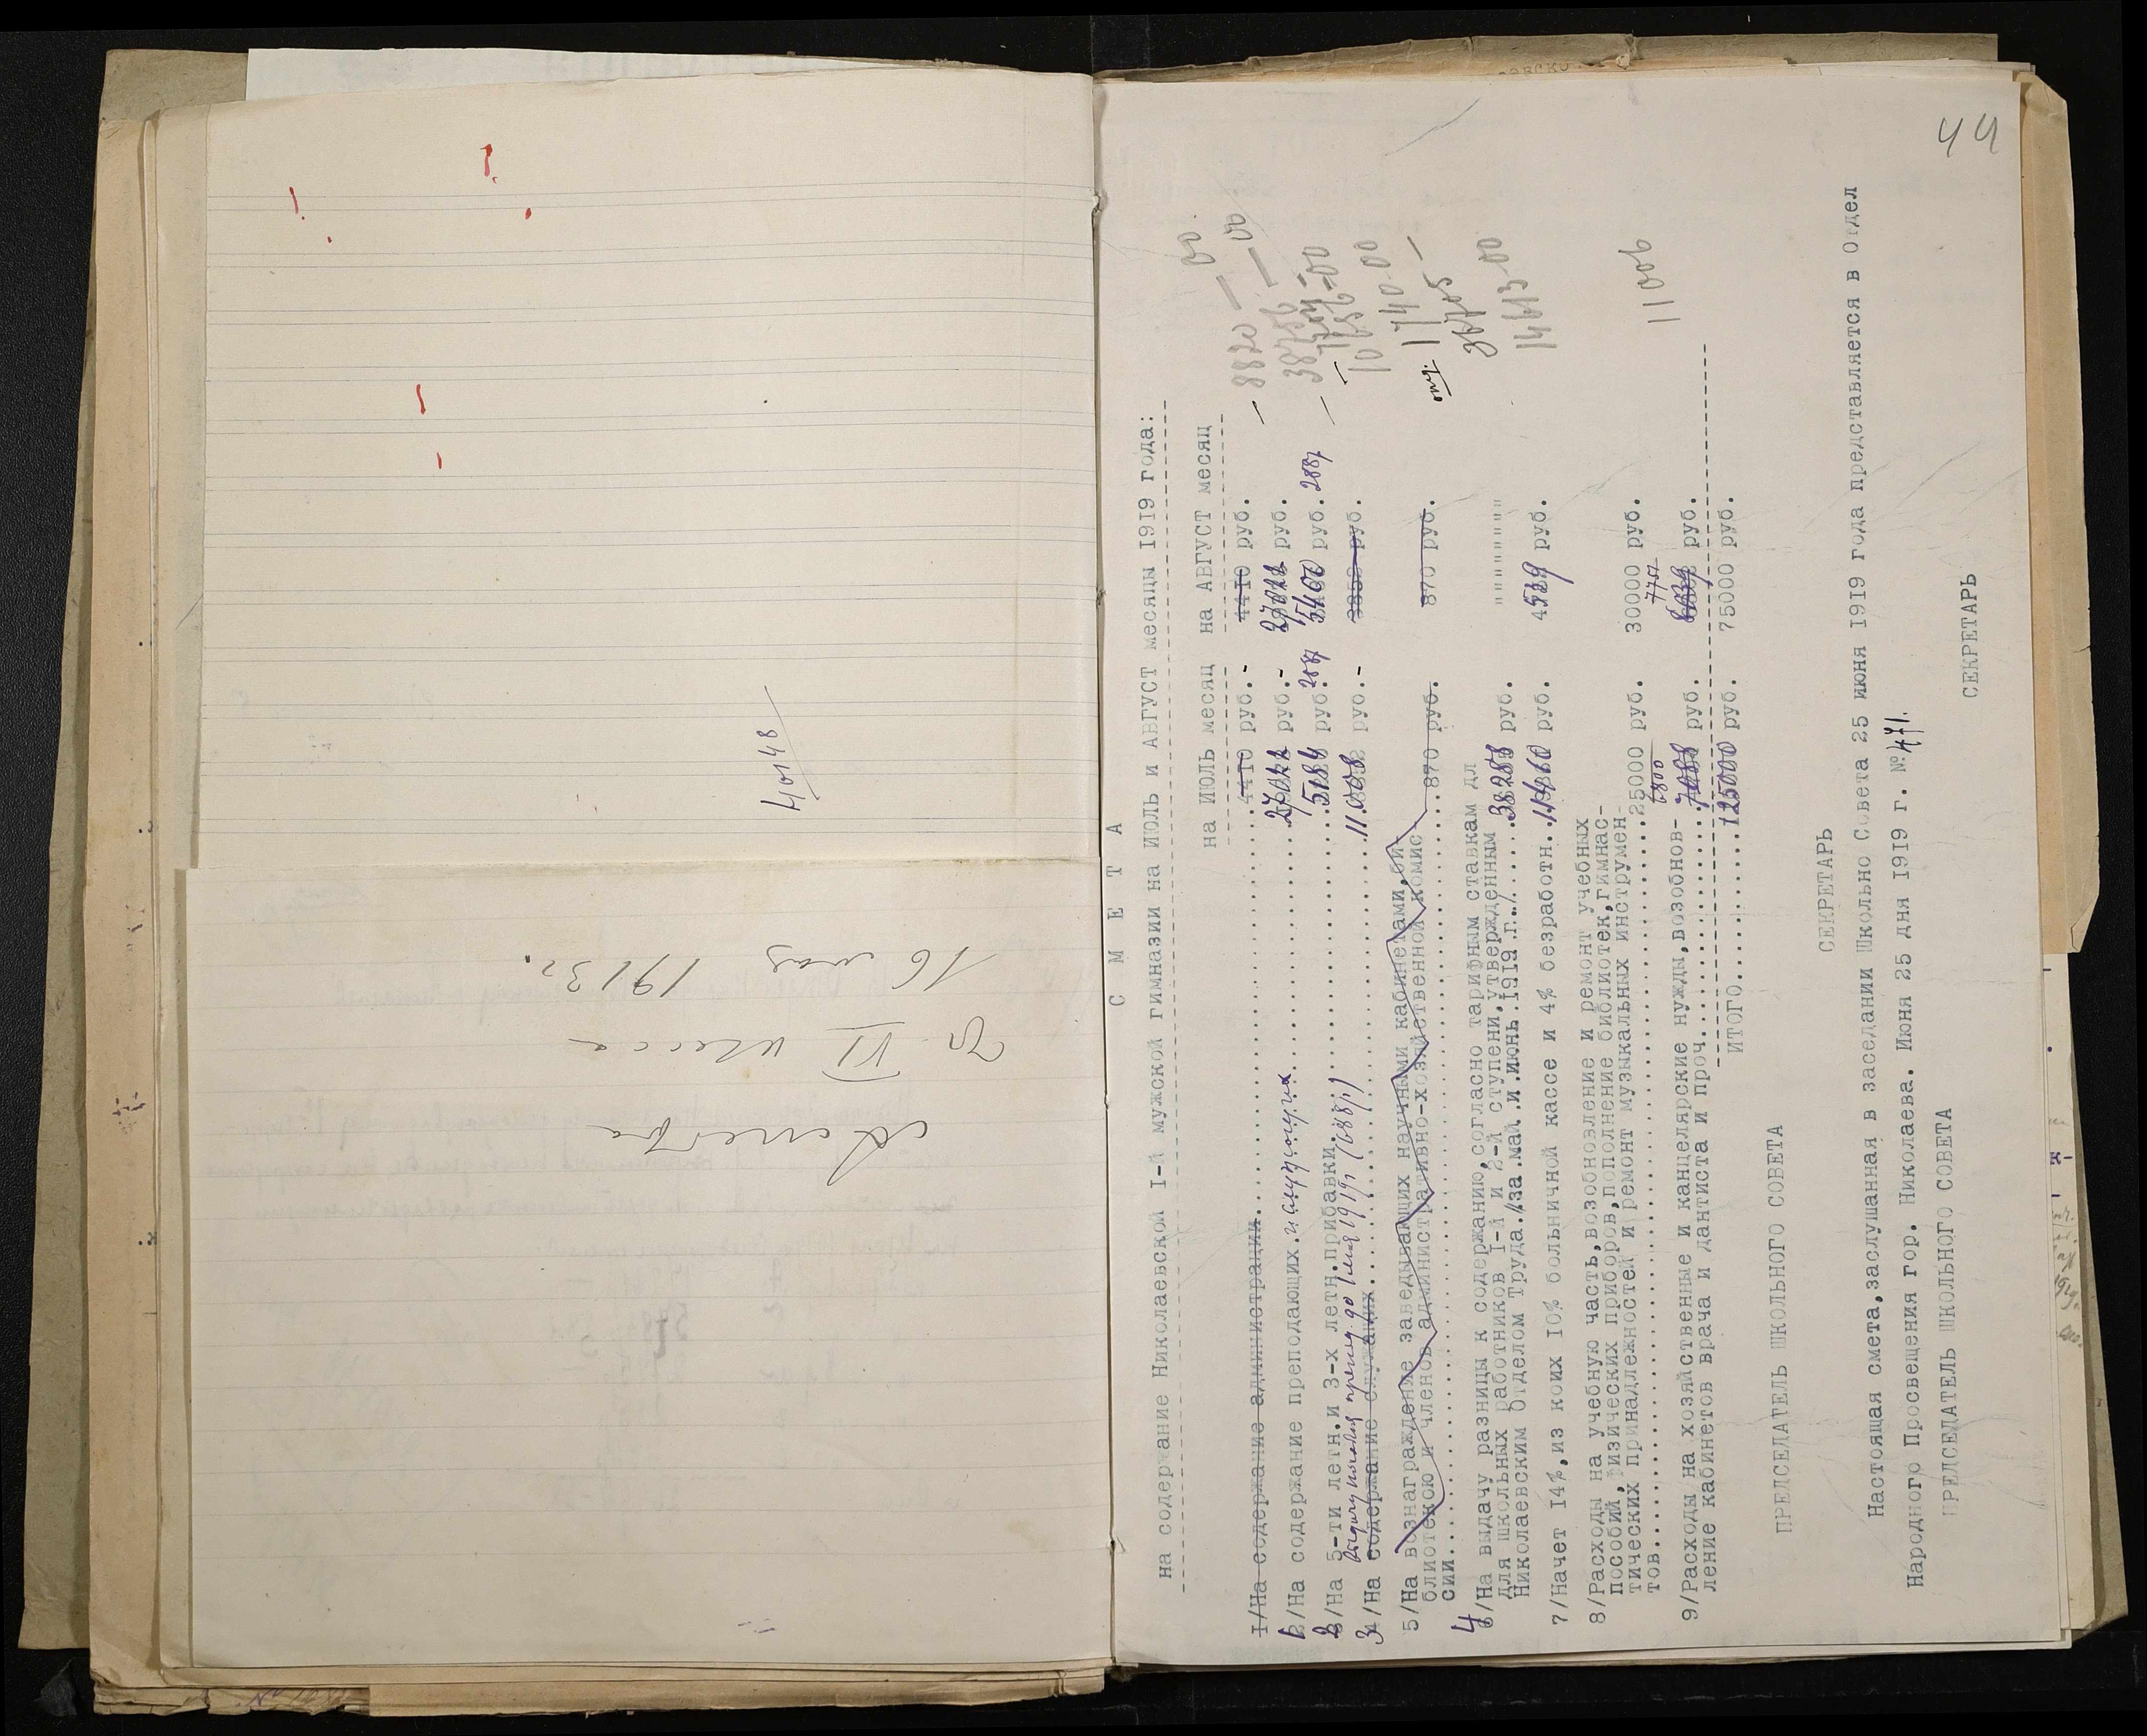 44
С М Е Т А
на содержание Николаевской I-й мужской гимназии на ИЮЛЬ и АВГУСТ месяцы 1919 года:
на ИЮЛЬ месяц на АВГУСТ месяц
I/На содержание администрации. 4410 руб.- 4410 руб. 8820 — 00
2/На содержание преподающих. и служащих 27022 руб.- руб.
3/На 5-ти летн.и 3-х летн.прибавки. 5184 руб. 2887 5400 руб. 2887
4/На содержание служащих 11.008 руб.- 3852 руб.
5/На вознаграждение заведывающих научными кабинетами,би
блиотекою и членов административно-хозяйственной комис
сии. 870 руб. 870 руб. 1740 00
6/На выдачу разницы к содержанию,согласно тарифным ставкам дл
для школьных работников I-й и 2-й ступени,утвержденным
Николаевским Отделом Труда./за май и июнь 1919 г./ руб. """"""""""
7/Начет 14%,из коих 10% больничной кассе и 4% безработн. 11460 руб. 4539 руб.
8/Расходы на учебную часть,возобновление и ремонт учебных
пособий,физических приборов,пополнение библиотек,гимнас-
тических принадлежностей и ремонт музыкальных инструмен
тов. 25000 руб. 30000 руб. 11006
6800 7751
9/Расходы на хозяйственные и канцелярские нужды,возобнов-
ление кабинетов врача и дантиста и проч. руб. руб.
ИТОГО. 125000 руб. 75000 руб.
ПРЕДСЕДАТЕЛЬ ШКОЛЬНОГО СОВЕТА СЕКРЕТАРЬ
Настоящая смета,заслушанная в заседании Школьно Совета 25 июня 1919 года представляется в Отдел
Народного Просвещения гор. Николаева. Июня 25 дня 1919 г. № 471.
ПРЕДСЕДАТЕЛЬ ШКОЛЬНОГО СОВЕТА СЕКРЕТАРЬ
40148
VI класса
16 мая 1913 г.